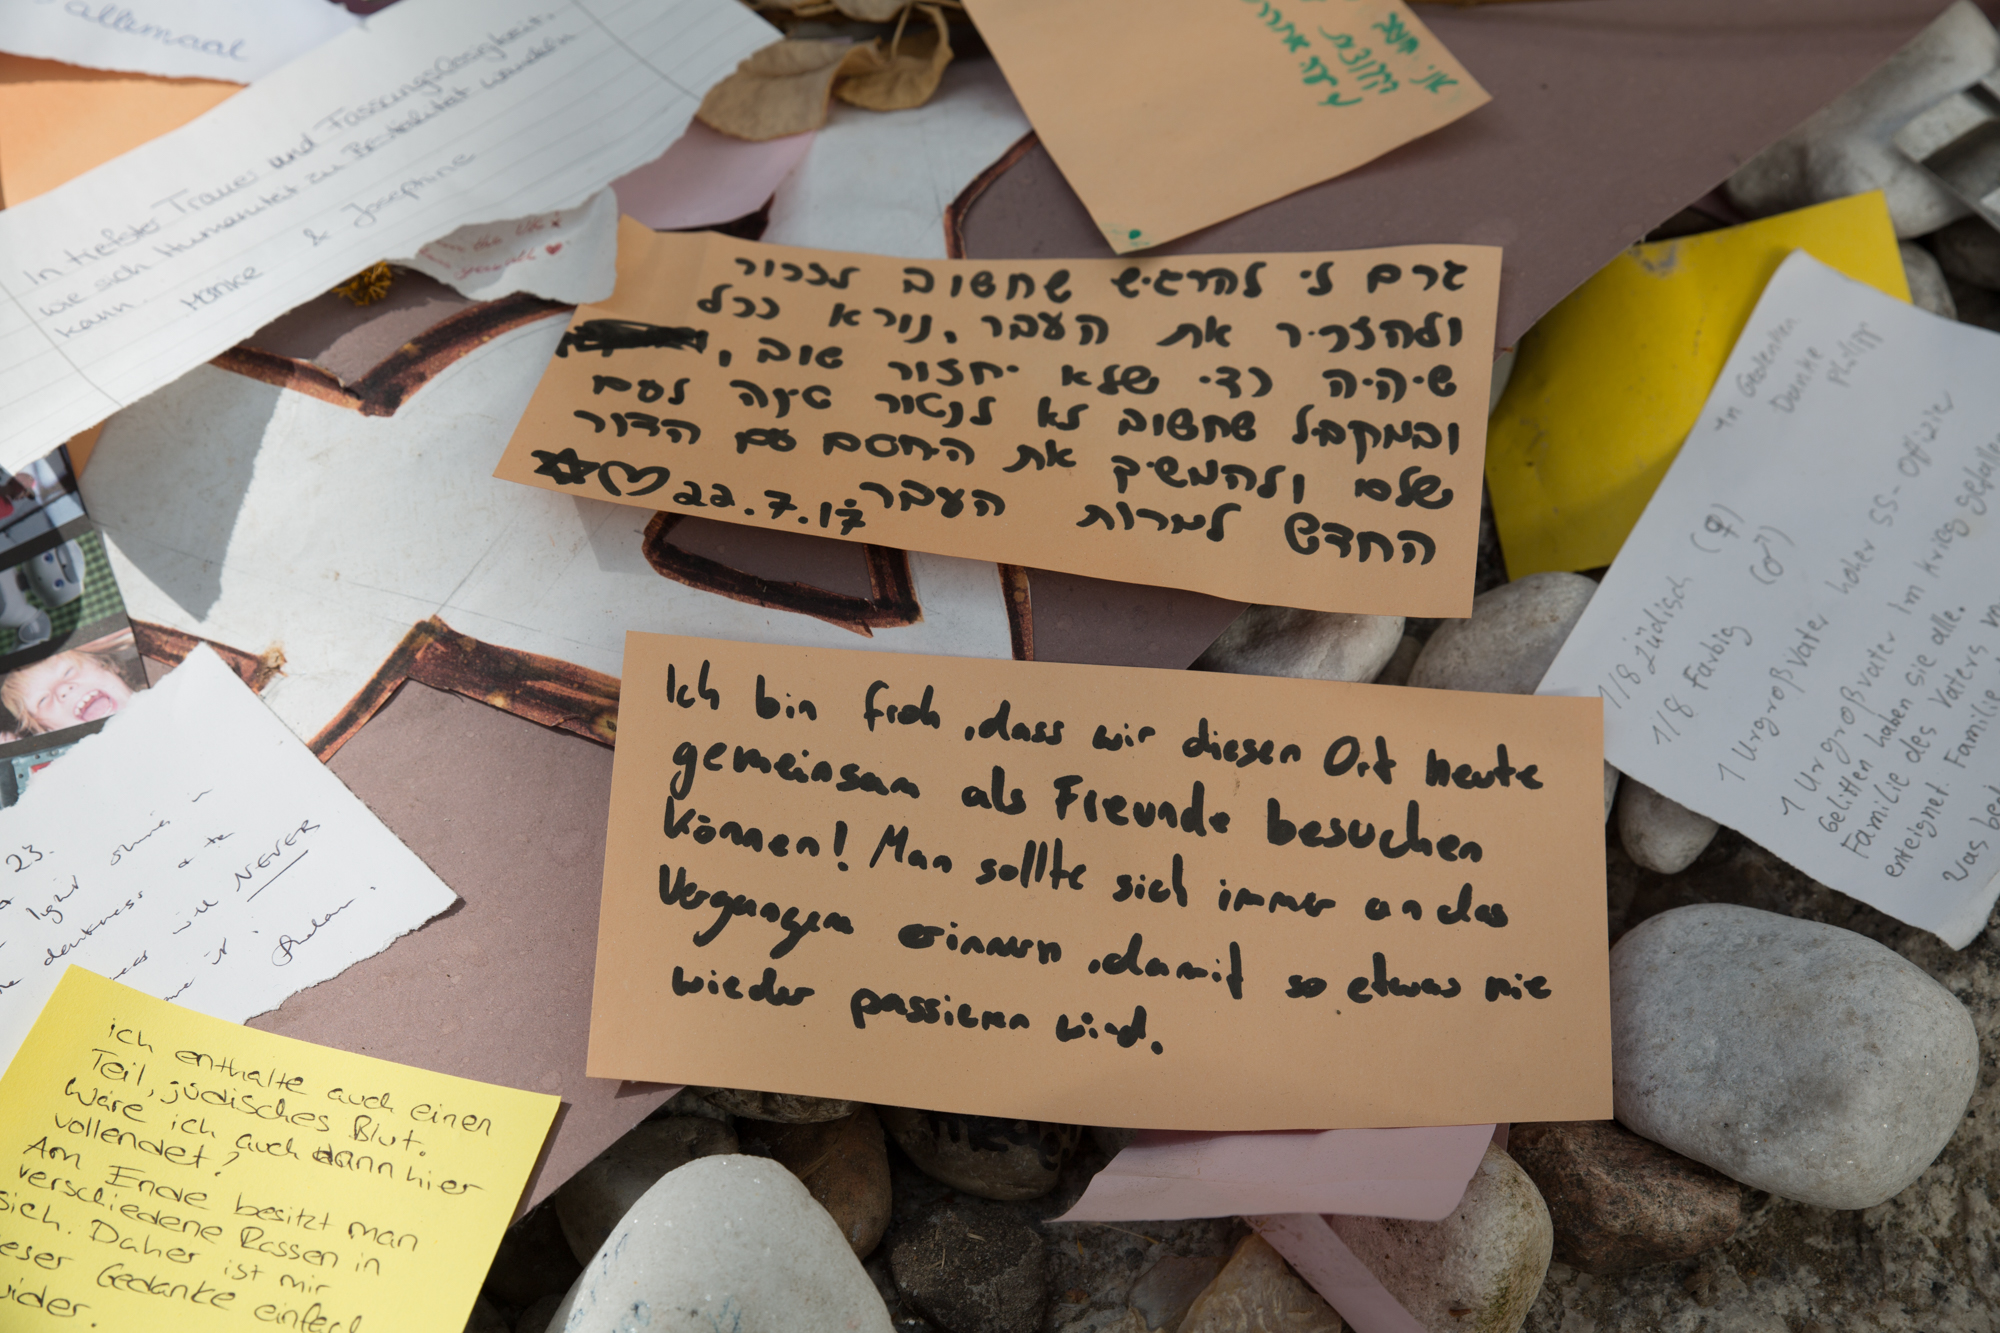 allemaal
In tiefster Trauer und Fassungslosigkeit,
wie sich Humanität zu Bestialität wandeln
kann.
& Josephine
אני
גרם לי להרגיש שחשוב לזכור
ולהזכיר את העבר, נורא ככל
שיהיה כדי שלא יחזור שוב,
ובמקביל שחשוב לא לנטור שינה לעם
שלם ולהמשיך את היחסים עם הדור
החדש למרות העבר
22.7.17
Ich bin froh, dass wir diesen Ort heute
gemeinsam als Freunde besuchen
können! Man sollte sich immer an das
Vergangem erinnern, damit so etwas nie
wieder passieren wird.
In Gedenken
Danke
Philipp
1/8 jüdisch (♀)
1/8 Farbig (♂)
1 Urgroßvater hoher SS-Offizier
1 Urgroßvater im Krieg gefallen
Gelitten haben sie alle.
Familie des Vaters
enteignet. Familie
Was
23.
light
darkness
will NEVER
it
ich enthalte auch einen
Teil, jüdisches Blut.
Wäre ich auch dann hier
vollendet?
Am Ende besitzt man
verschiedene Rassen in
sich. Daher ist mir
ieser Gedanke einfach
wider.